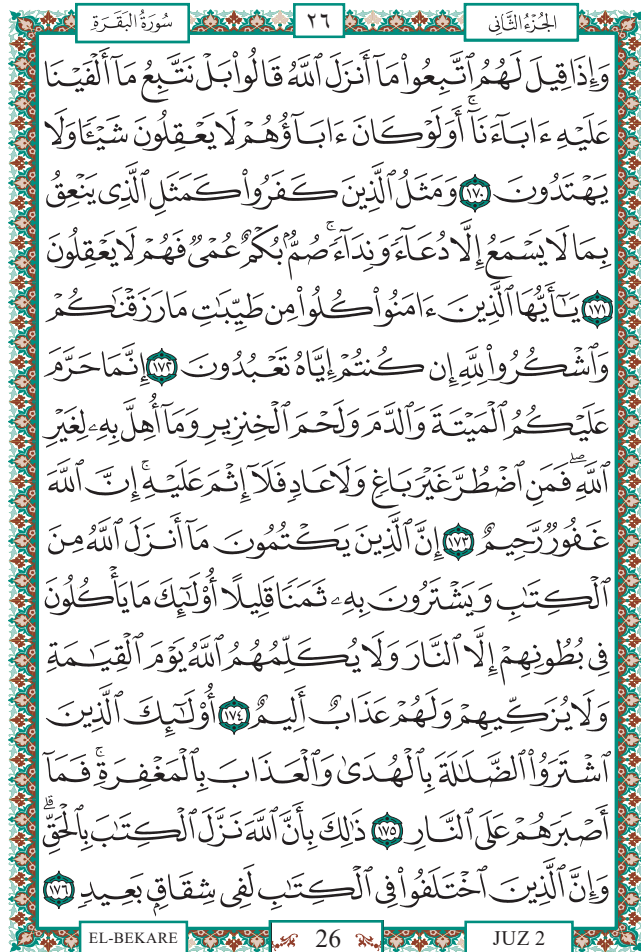 سُورَةُ الْبَقَرَةِ ٢٦ الجُزْءُ الثَّانِى
وَإِذَا قِيلَ لَهُمُ ٱتَّبِعُوا۟ مَآ أَنزَلَ ٱللَّهُ قَالُوا۟ بَلْ نَتَّبِعُ مَآ أَلْفَيْنَا
عَلَيْهِ ءَابَآءَنَآ ۚ أَوَلَوْ كَانَ ءَابَآؤُهُمْ لَا يَعْقِلُونَ شَيْـًٔا وَلَا
يَهْتَدُونَ ١٧٠ وَمَثَلُ ٱلَّذِينَ كَفَرُوا۟ كَمَثَلِ ٱلَّذِى يَنْعِقُ
بِمَا لَا يَسْمَعُ إِلَّا دُعَآءً وَنِدَآءً ۚ صُمٌّۢ بُكْمٌ عُمْىٌ فَهُمْ لَا يَعْقِلُونَ
١٧١ يَـٰٓأَيُّهَا ٱلَّذِينَ ءَامَنُوا۟ كُلُوا۟ مِن طَيِّبَـٰتِ مَا رَزَقْنَـٰكُمْ
وَٱشْكُرُوا۟ لِلَّهِ إِن كُنتُمْ إِيَّاهُ تَعْبُدُونَ ١٧٢ إِنَّمَا حَرَّمَ
عَلَيْكُمُ ٱلْمَيْتَةَ وَٱلدَّمَ وَلَحْمَ ٱلْخِنزِيرِ وَمَآ أُهِلَّ بِهِۦ لِغَيْرِ
ٱللَّهِ ۖ فَمَنِ ٱضْطُرَّ غَيْرَ بَاغٍ وَلَا عَادٍ فَلَآ إِثْمَ عَلَيْهِ ۚ إِنَّ ٱللَّهَ
غَفُورٌ رَّحِيمٌ ١٧٣ إِنَّ ٱلَّذِينَ يَكْتُمُونَ مَآ أَنزَلَ ٱللَّهُ مِنَ
ٱلْكِتَـٰبِ وَيَشْتَرُونَ بِهِۦ ثَمَنًا قَلِيلًا أُو۟لَـٰٓئِكَ مَا يَأْكُلُونَ
فِى بُطُونِهِمْ إِلَّا ٱلنَّارَ وَلَا يُكَلِّمُهُمُ ٱللَّهُ يَوْمَ ٱلْقِيَـٰمَةِ
وَلَا يُزَكِّيهِمْ وَلَهُمْ عَذَابٌ أَلِيمٌ ١٧٤ أُو۟لَـٰٓئِكَ ٱلَّذِينَ
ٱشْتَرَوُا۟ ٱلضَّلَـٰلَةَ بِٱلْهُدَىٰ وَٱلْعَذَابَ بِٱلْمَغْفِرَةِ ۚ فَمَآ
أَصْبَرَهُمْ عَلَى ٱلنَّارِ ١٧٥ ذَٰلِكَ بِأَنَّ ٱللَّهَ نَزَّلَ ٱلْكِتَـٰبَ بِٱلْحَقِّ ۗ
وَإِنَّ ٱلَّذِينَ ٱخْتَلَفُوا۟ فِى ٱلْكِتَـٰبِ لَفِى شِقَاقٍۭ بَعِيدٍ ١٧٦
EL-BEKARE 26 JUZ 2